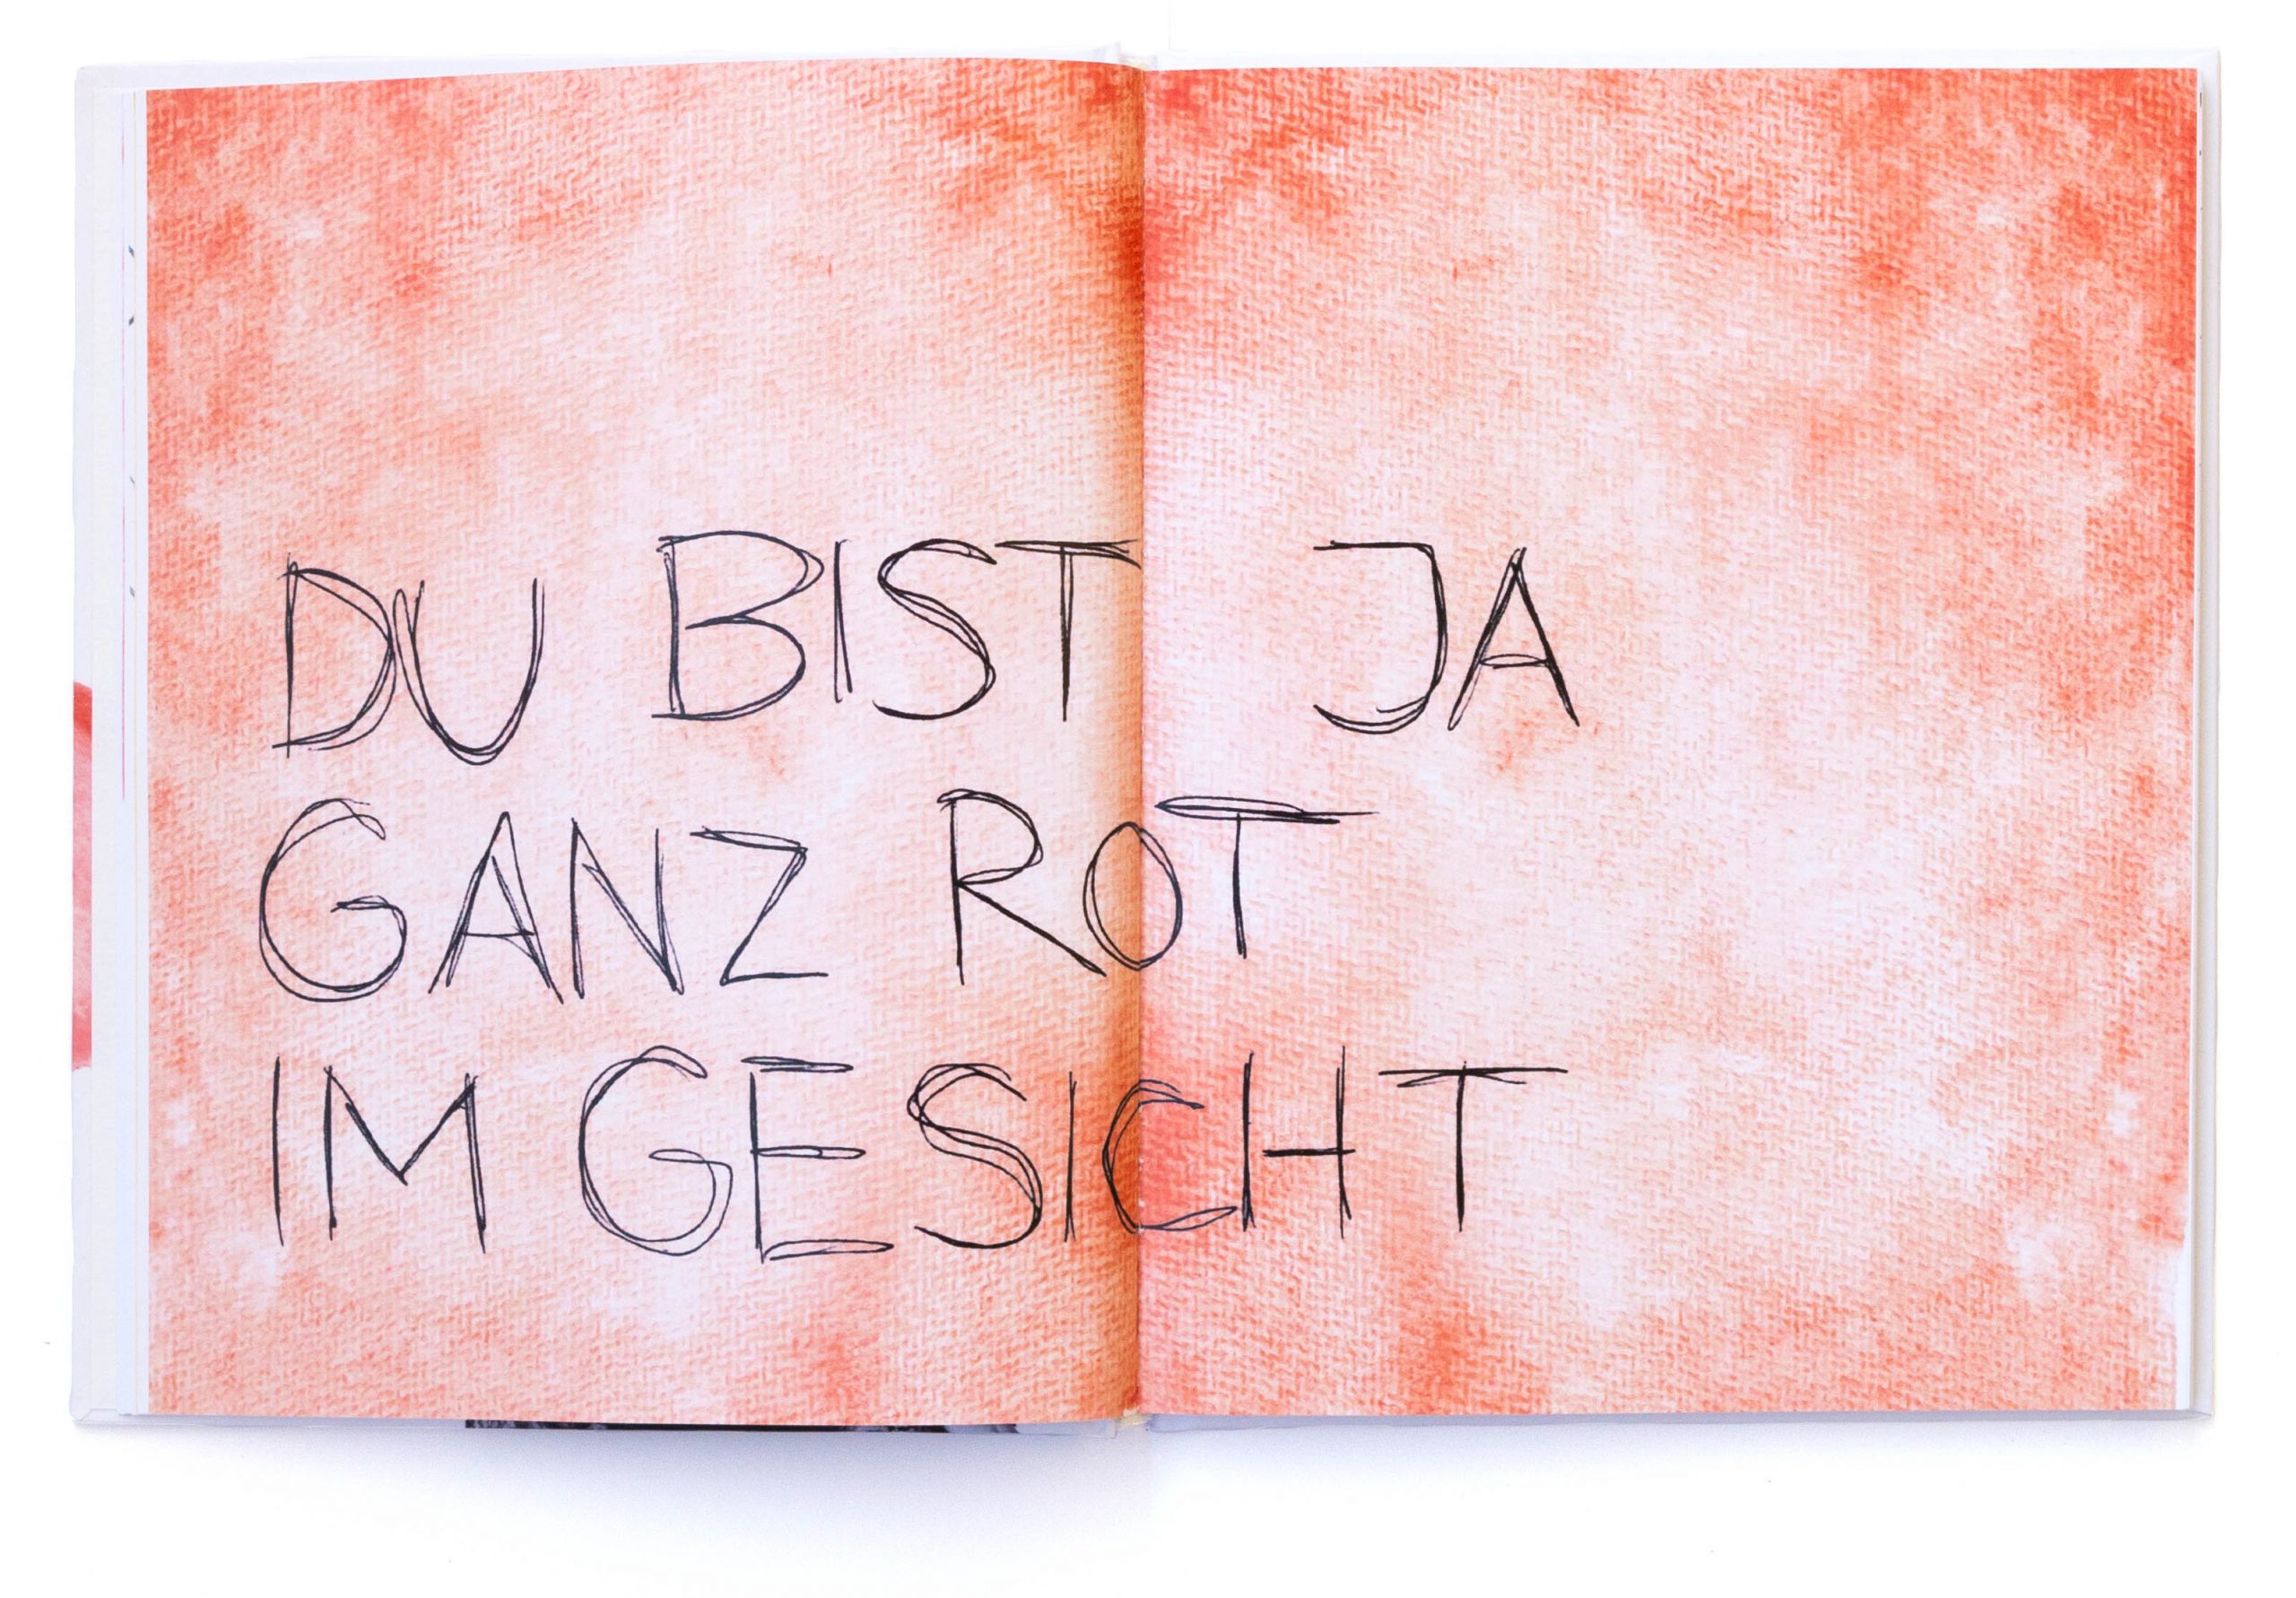 DU BIST JA
GANZ ROT
IM GESICHT